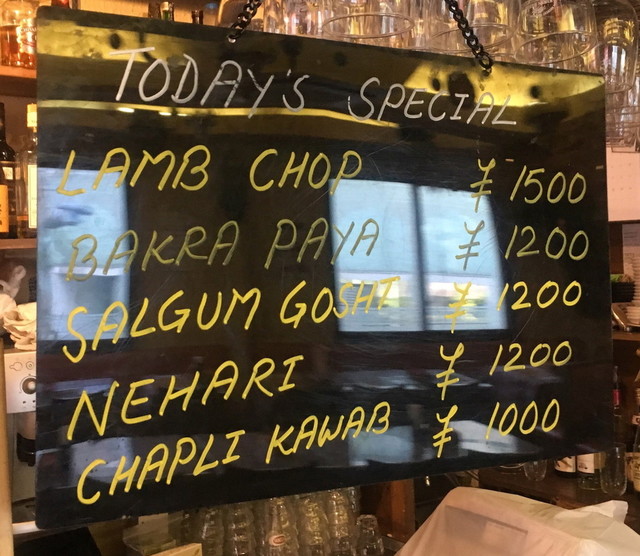 TODAY'S SPECIAL
LAMB CHOP ¥ 1500
BAKRA PAYA ¥ 1200
SALGUM GOSHT ¥ 1200
NEHARI ¥ 1200
CHAPLI KAWAB ¥ 1000